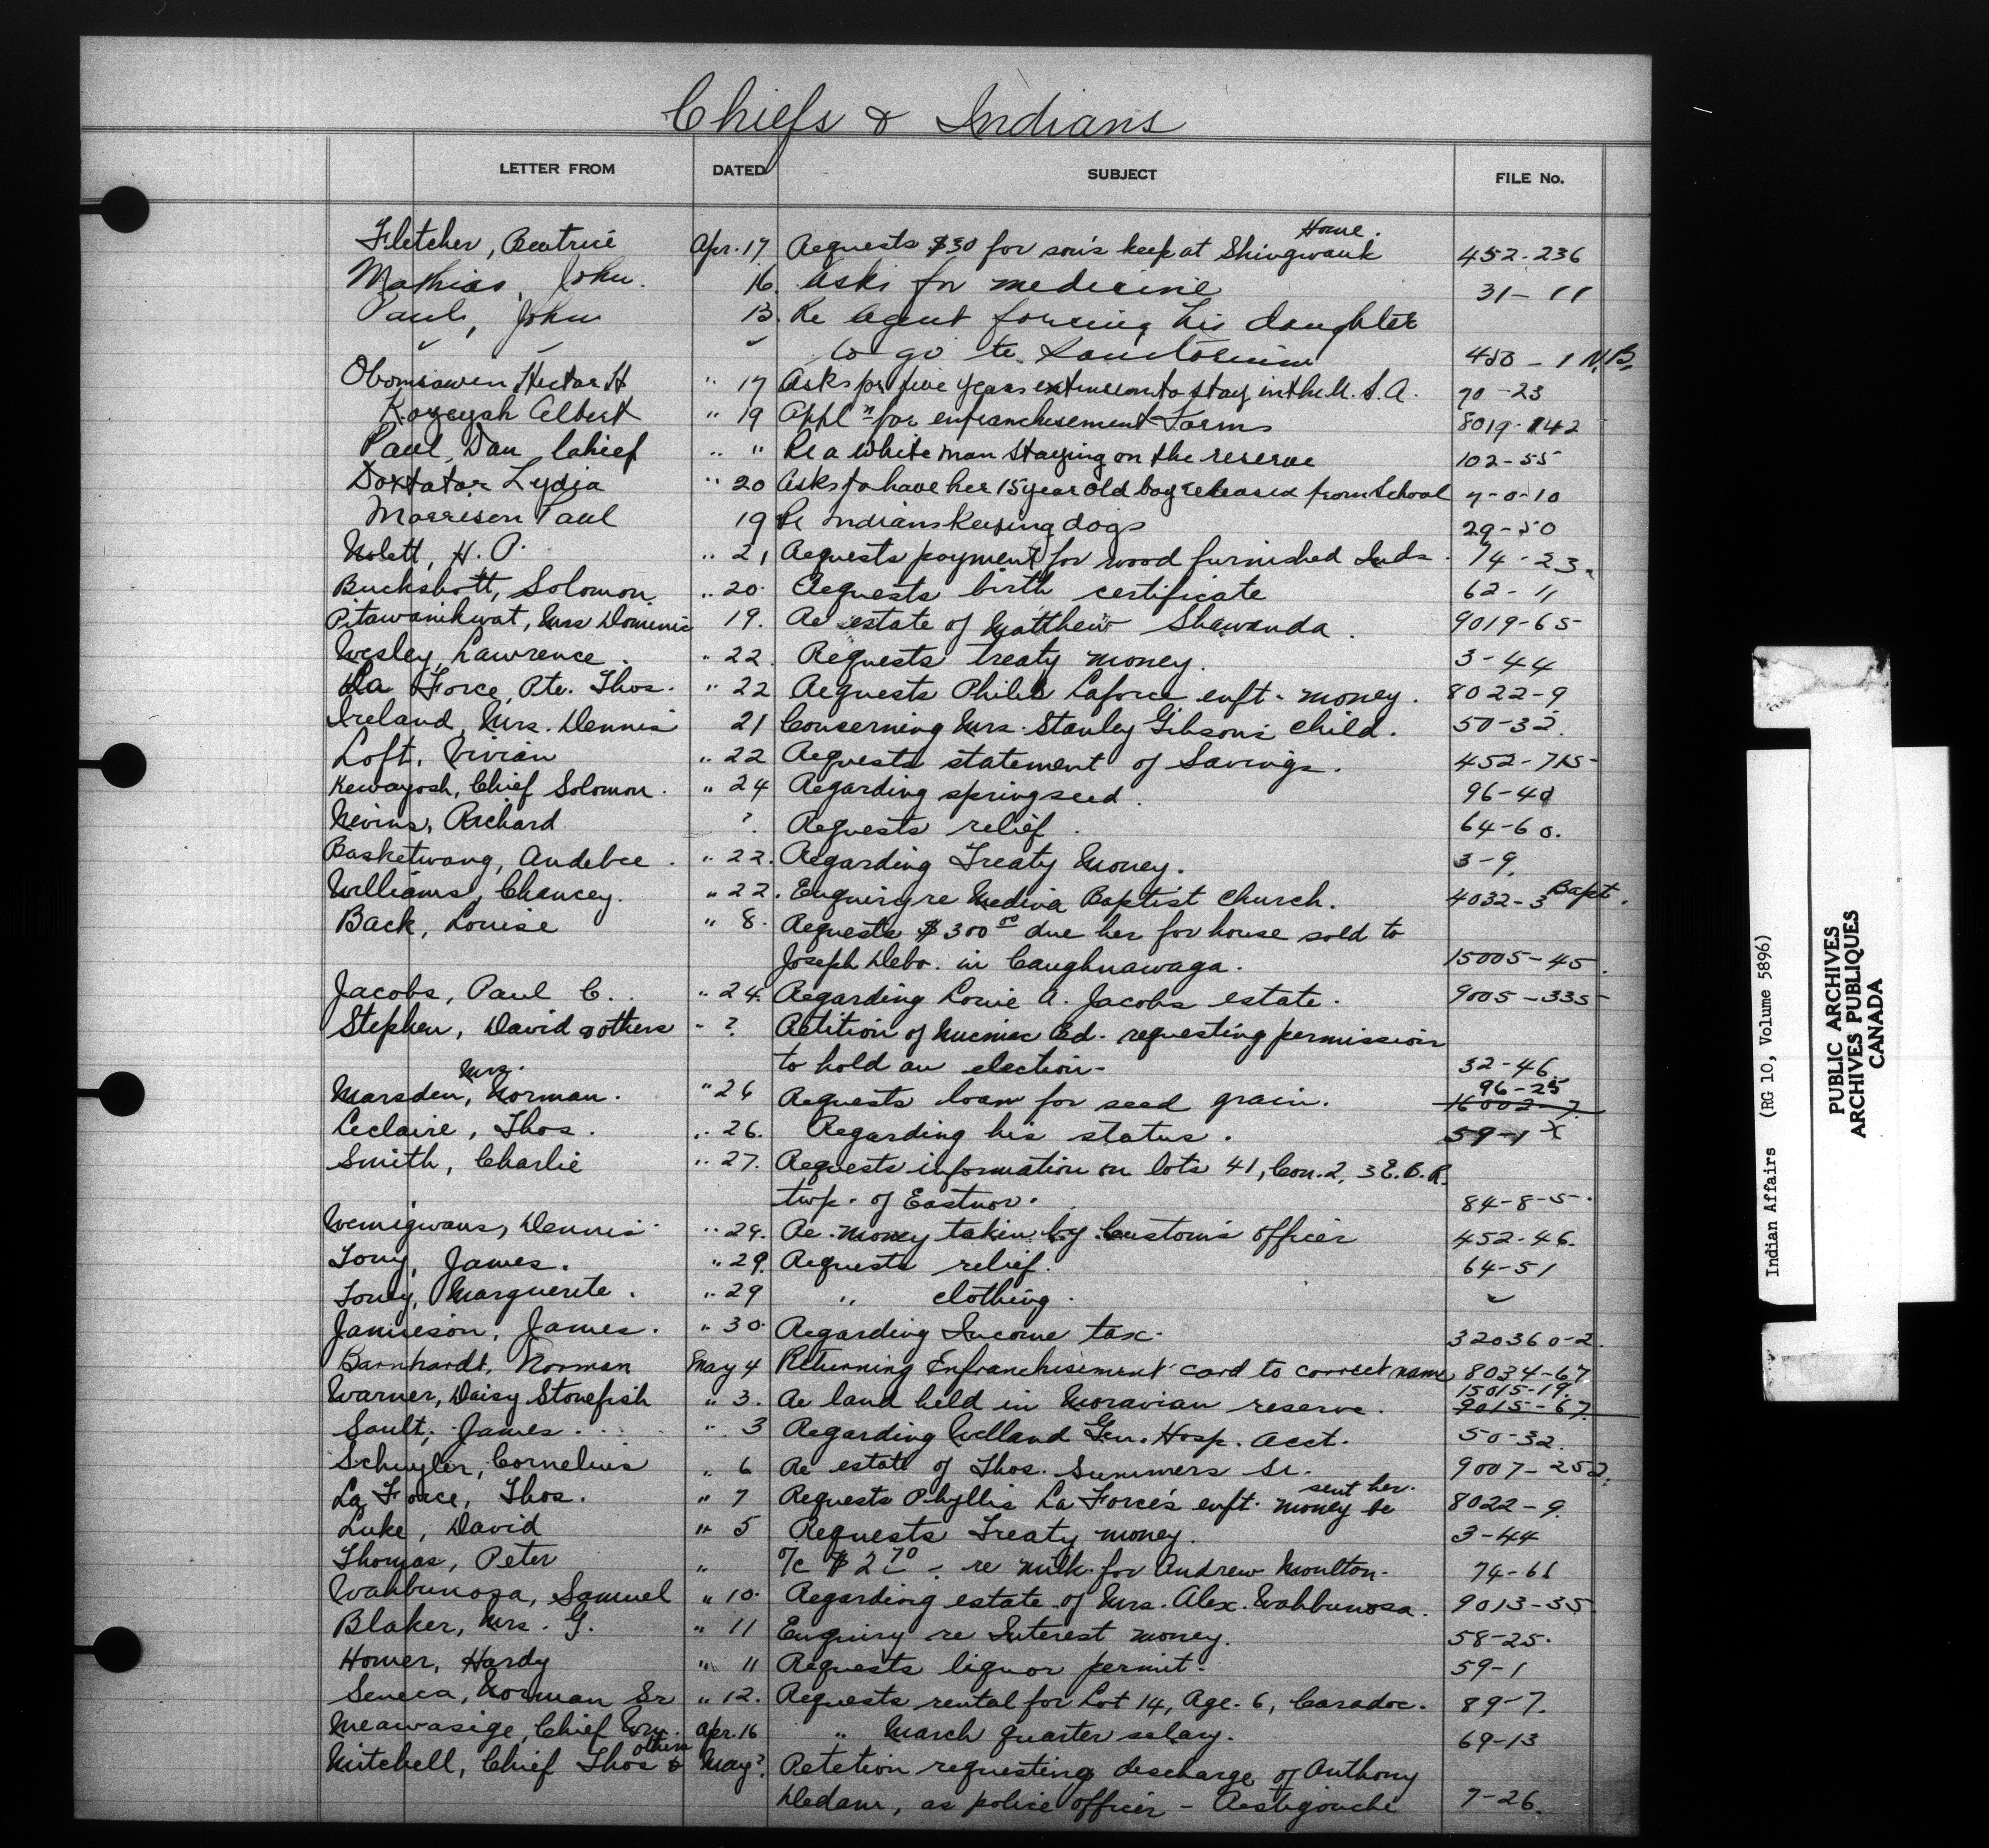 Chiefs & Indians
LETTER FROM DATED SUBJECT FILE No.
Home.
Fletcher, Beatrice Apr. 17 Requests $30 for son's keep at Shingwauk 452-236
Mathias, John. 16. Asks for medicine 31-11
Paul, John 13. Re Agent forcing his daughter
to go to Sanitorium 450-1 N.B.
Obomsawen Hector H " 17 Asks for five years extension to stay in the U.S.A. 70-23
Kozeyah Albert " 19 Appln for enfranchisement Forms 8019-142
Paul, Dan Chief " " Re a white man staying on the reserve 102-55
Doxtator Lydia " 20 Asks to have her 15 year old boy released from School 7-0-10
Morrison Paul 19 Re Indians keeping dogs 29-50
Nolett, H. P. " 21 Requests payment for wood furnished Inds. 74-23.
Buckshott, Solomon " 20. Requests birth certificate 62-11
Pitawanikwat, Mrs Dominic 19. Re estate of Matthew Shawanda. 9019-65
Wesley, Lawrence. " 22. Requests treaty money. 3-44
La Force, Pte. Thos. " 22 Requests Philis Laforce enft. money. 8022-9
Ireland, Mrs. Dennis 21 Concerning Mrs. Stanley Gibson's child. 50-32.
Loft, Vivian " 22 Requests statement of Savings. 452-715
Kewayosh, Chief Solomon. " 24 Regarding spring seed. 96-40
Nevins, Richard ?. Requests relief. 64-60.
Basketwang, Andebee. " 22. Regarding Treaty Money. 3-9.
Williams, Chancey. " 22. Enquiry re Medina Baptist Church. 4032-3 Bapt.
Back, Louise " 8. Requests $300 00 due her for house sold to
Joseph Debo. in Caughnawaga. 15005-45.
Jacobs, Paul C. " 24. Regarding Louie A. Jacobs estate. 9005-335
Stephen, David & others " ? Petition of Micmac Bd. requesting permission
to hold an election. 32-46
Mrs. 96-25
Marsden, Norman. " 26 Requests loan for seed grain. 16002-7
Leclaire, Thos. " 26. Regarding his status. 59-1 X
Smith, Charlie " 27. Requests information on lots 41, Con. 2, 3 E.B.R.
twp. of Eastnor. 84-8-5.
Wemigwans, Dennis " 29. Re. money taken by Customs officer 452-46.
Tony, James. " 29. Requests relief. 64-51
Toney, Marguerite. " 29 " clothing. "
Jamieson, James. " 30. Regarding Income tax. 320360-2.
Barnhardt, Norman May 4 Returning Enfranchisement card to correct name 8034-67
15015-19.
Warner, Daisy Stonefish " 3. Re land held in Moravian reserve. 9015-67
Sault, James. " 3 Regarding Welland Gen. Hosp. acct. 50-32.
Schuyler, Cornelius " 6 Re estate of Thos. Summers Sr. 9007-252.
sent her.
La Force, Thos. " 7 Requests Phyllis La Force's enft. money be 8022-9
Luke, David " 5 Requests Treaty money. 3-44
Thomas, Peter " %c $2 70 - re milk for Andrew Moulton. 74-61
Wahbunosa, Samuel " 10. Regarding estate of Mrs. Alex. Wahbunosa. 9013-35
Blaker, Mrs. G. " 11 Enquiry re Interest money. 58-25.
Homer, Hardy " 11 Requests liquor permit. 59-1
Seneca, Norman Sr " 12. Requests rental for Lot 14, Rge. 6, Caradoc. 89-7.
Meawasige, Chief Wm. Apr. 16 " March quarter salary. 69-13
others
Mitchell, Chief Thos & May ?. Petetion requesting discharge of Anthony
Dedam, as police officer - Restigouche 7-26.
Indian Affairs (RG 10, Volume 5896)
PUBLIC ARCHIVES
ARCHIVES PUBLIQUES
CANADA